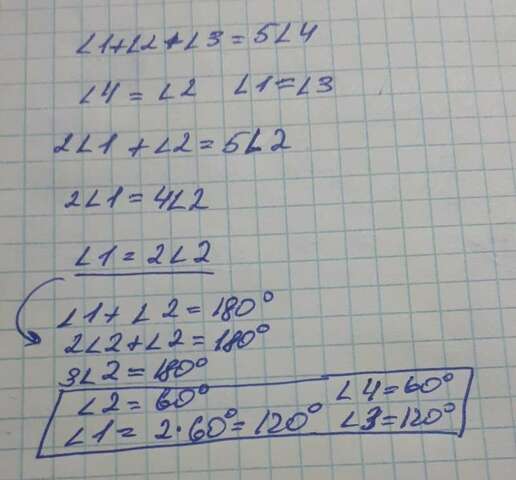 ∠1+∠2+∠3=5∠4
∠4=∠2 ∠1=∠3
2∠1+∠2=5∠2
2∠1=4∠2
∠1=2∠2
∠1+∠2=180°
2∠2+∠2=180°
3∠2=180°
∠2=60° ∠4=60°
∠1=2·60°=120° ∠3=120°